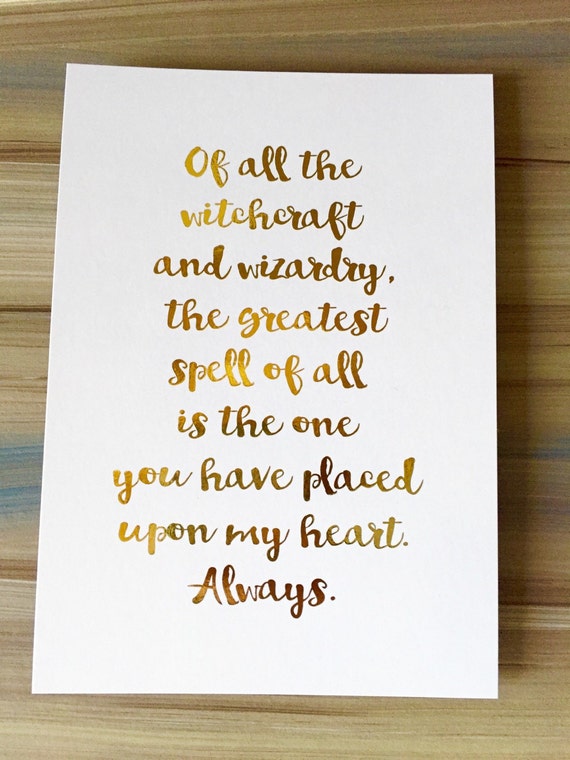 Of all the
witchcraft
and wizardry,
the greatest
spell of all
is the one
you have placed
upon my heart.
Always.